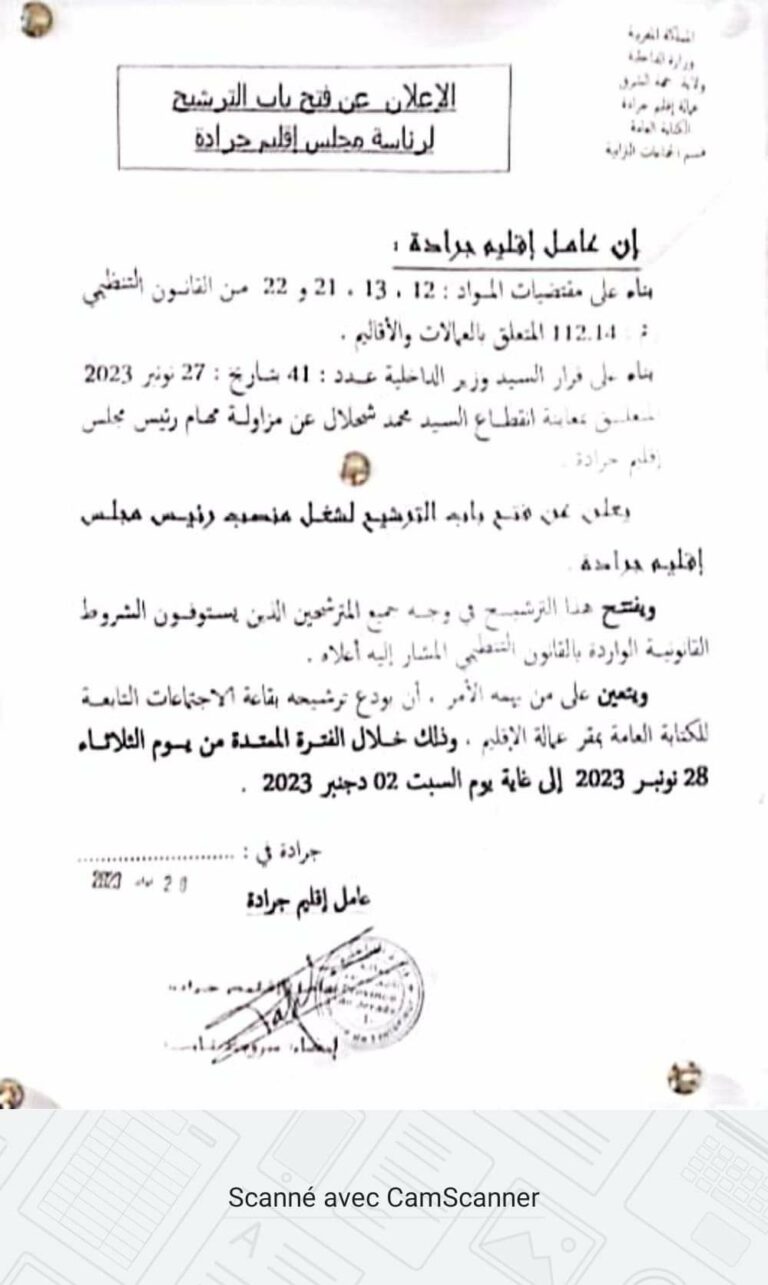 المملكة المغربية
وزارة الداخلية
ولاية جهة الشرق
عمالة إقليم جرادة
الكتابة العامة
قسم الجماعات الترابية
الإعلان عن فتح باب الترشيح
لرئاسة مجلس إقليم جرادة
إن عامل إقليم جرادة :
بناء على مقتضيات المواد : 12 ، 13 ، 21 و 22 من القانون التنظيمي
112.14 المتعلق بالعمالات والأقاليم .
بناء على قرار السيد وزير الداخلية عدد : 41 بتاريخ : 27 نونبر 2023
المتعلق بمعاينة انقطاع السيد محمد شحلال عن مزاولة مهام رئيس مجلس
إقليم جرادة .
يعلن عن فتح باب الترشيح لشغل منصب رئيس مجلس
إقليم جرادة .
ويفتح هذا الترشيح في وجه جميع المترشحين الذين يستوفون الشروط
القانونية الواردة بالقانون التنظيمي المشار إليه أعلاه .
ويتعين على من يهمه الأمر ، أن يودع ترشيحه بقاعة الاجتماعات التابعة
للكتابة العامة بمقر عمالة الإقليم ، وذلك خلال الفترة الممتدة من يوم الثلاثاء
28 نونبر 2023 إلى غاية يوم السبت 02 دجنبر 2023 .
جرادة في : ........................
2023
عامل إقليم جرادة
عامل إقليم جرادة
إمضاء:
Scanné avec CamScanner